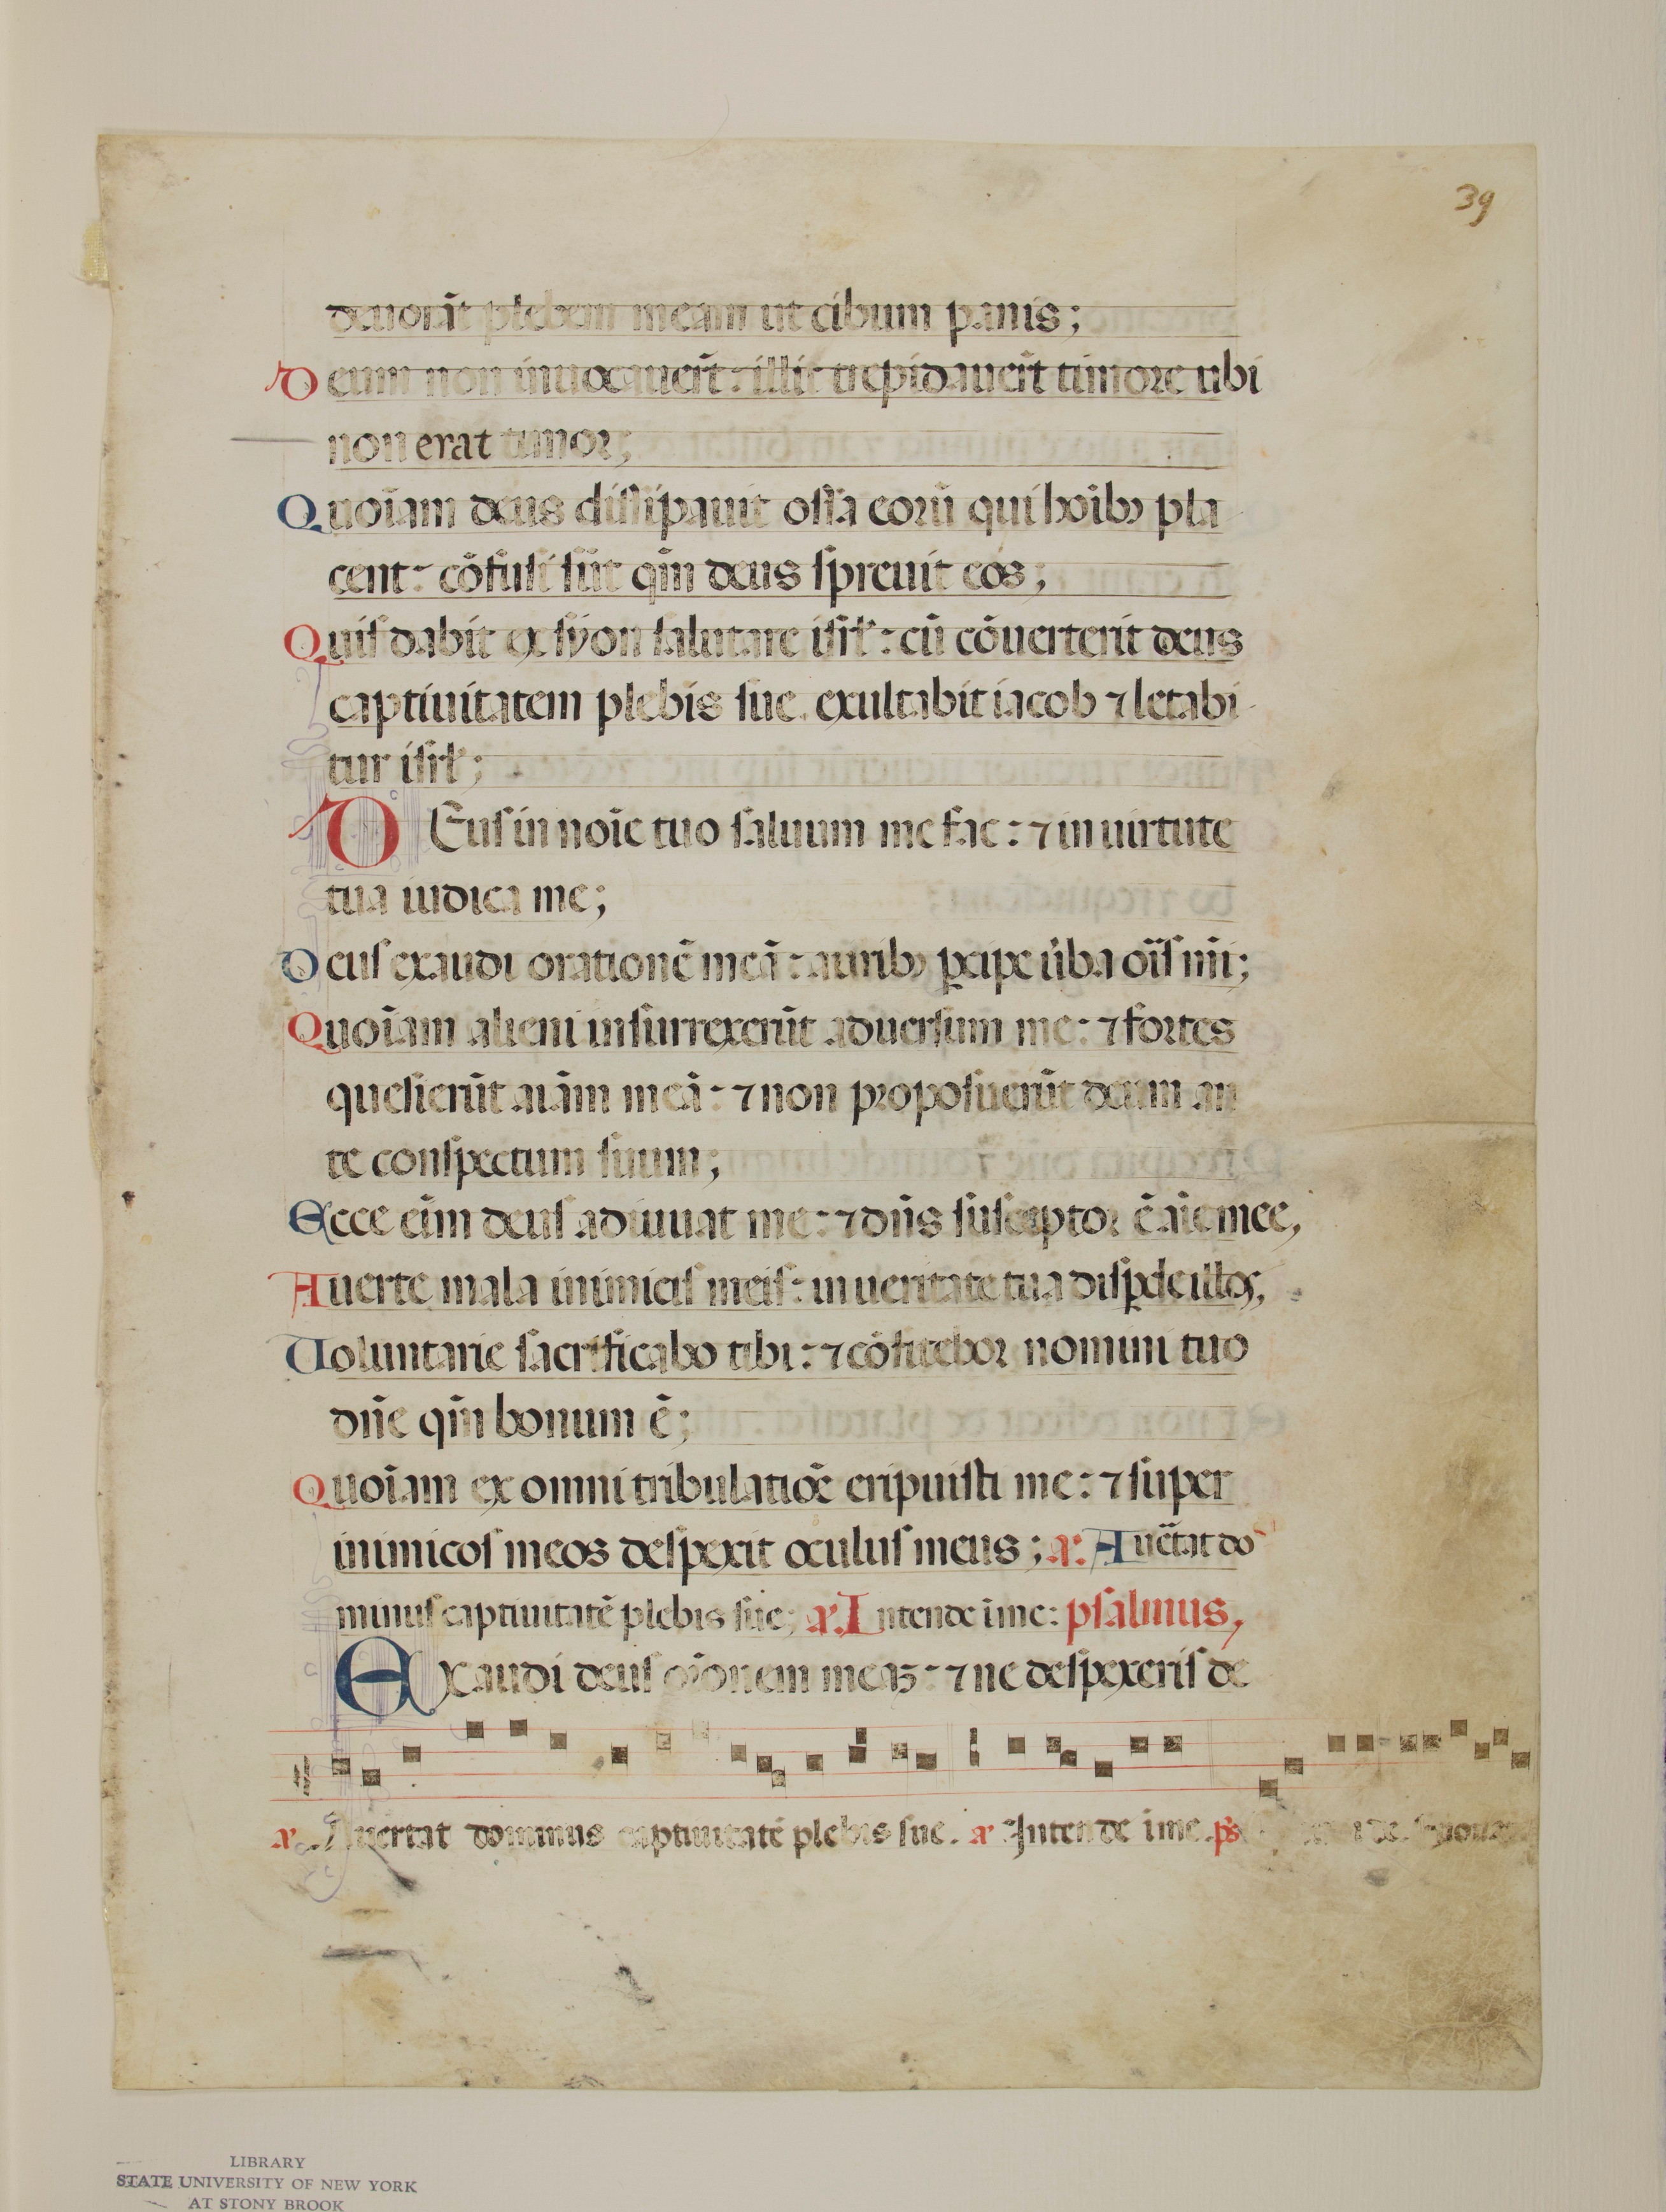 39
deuorāt plebem meam ut cibum panis;
Deum non inuocauer̄t: illic trepidauer̄t timore ubi
non erat timor;
Quoīam deus dissipauit ossa eorū qui hoīb; pla
cent: cōfusi sūt qm̄ deus spreuit eos;
Quis dabit ex syon salutare isrł: cū cōuerterit deus
captiuitatem plebis sue. exultabit iacob ⁊ letabi
tur isrł;
DEus in noīe tuo saluum me fac: ⁊ in uirtute
tua iudica me;
Deus exaudi orationē meā: aurib; ꝑcipe ūba oīs mī;
Quoīam alieni insurrexerūt aduersum me: ⁊ fortes
quesierūt aīam meā: ⁊ non proposuerūt deum an
te conspectum suum;
Ecce eīm deus adiuuat me: ⁊ dn̄s susceptor ē aīe mee,
Auerte mala inimicis meis: in ueritate tua disꝑde illos,
Uoluntarie sacrificabo tibi: ⁊ cōfitebor nomini tuo
dn̄e qm̄ bonum ē;
Quoīam ex omni tribulatiōe eripuisti me: ⁊ super
inimicos meos despexit oculus meus; a. Auētat do
minus captiuitatē plebis sue; a. Intende ī me: psalmus,
EXaudi deus or̄onem meaꝫ: ⁊ ne despexeris de
a. Auertat dominus captiuitatē plebis sue. a Intende ī me. ps
LIBRARY
STATE UNIVERSITY OF NEW YORK
AT STONY BROOK